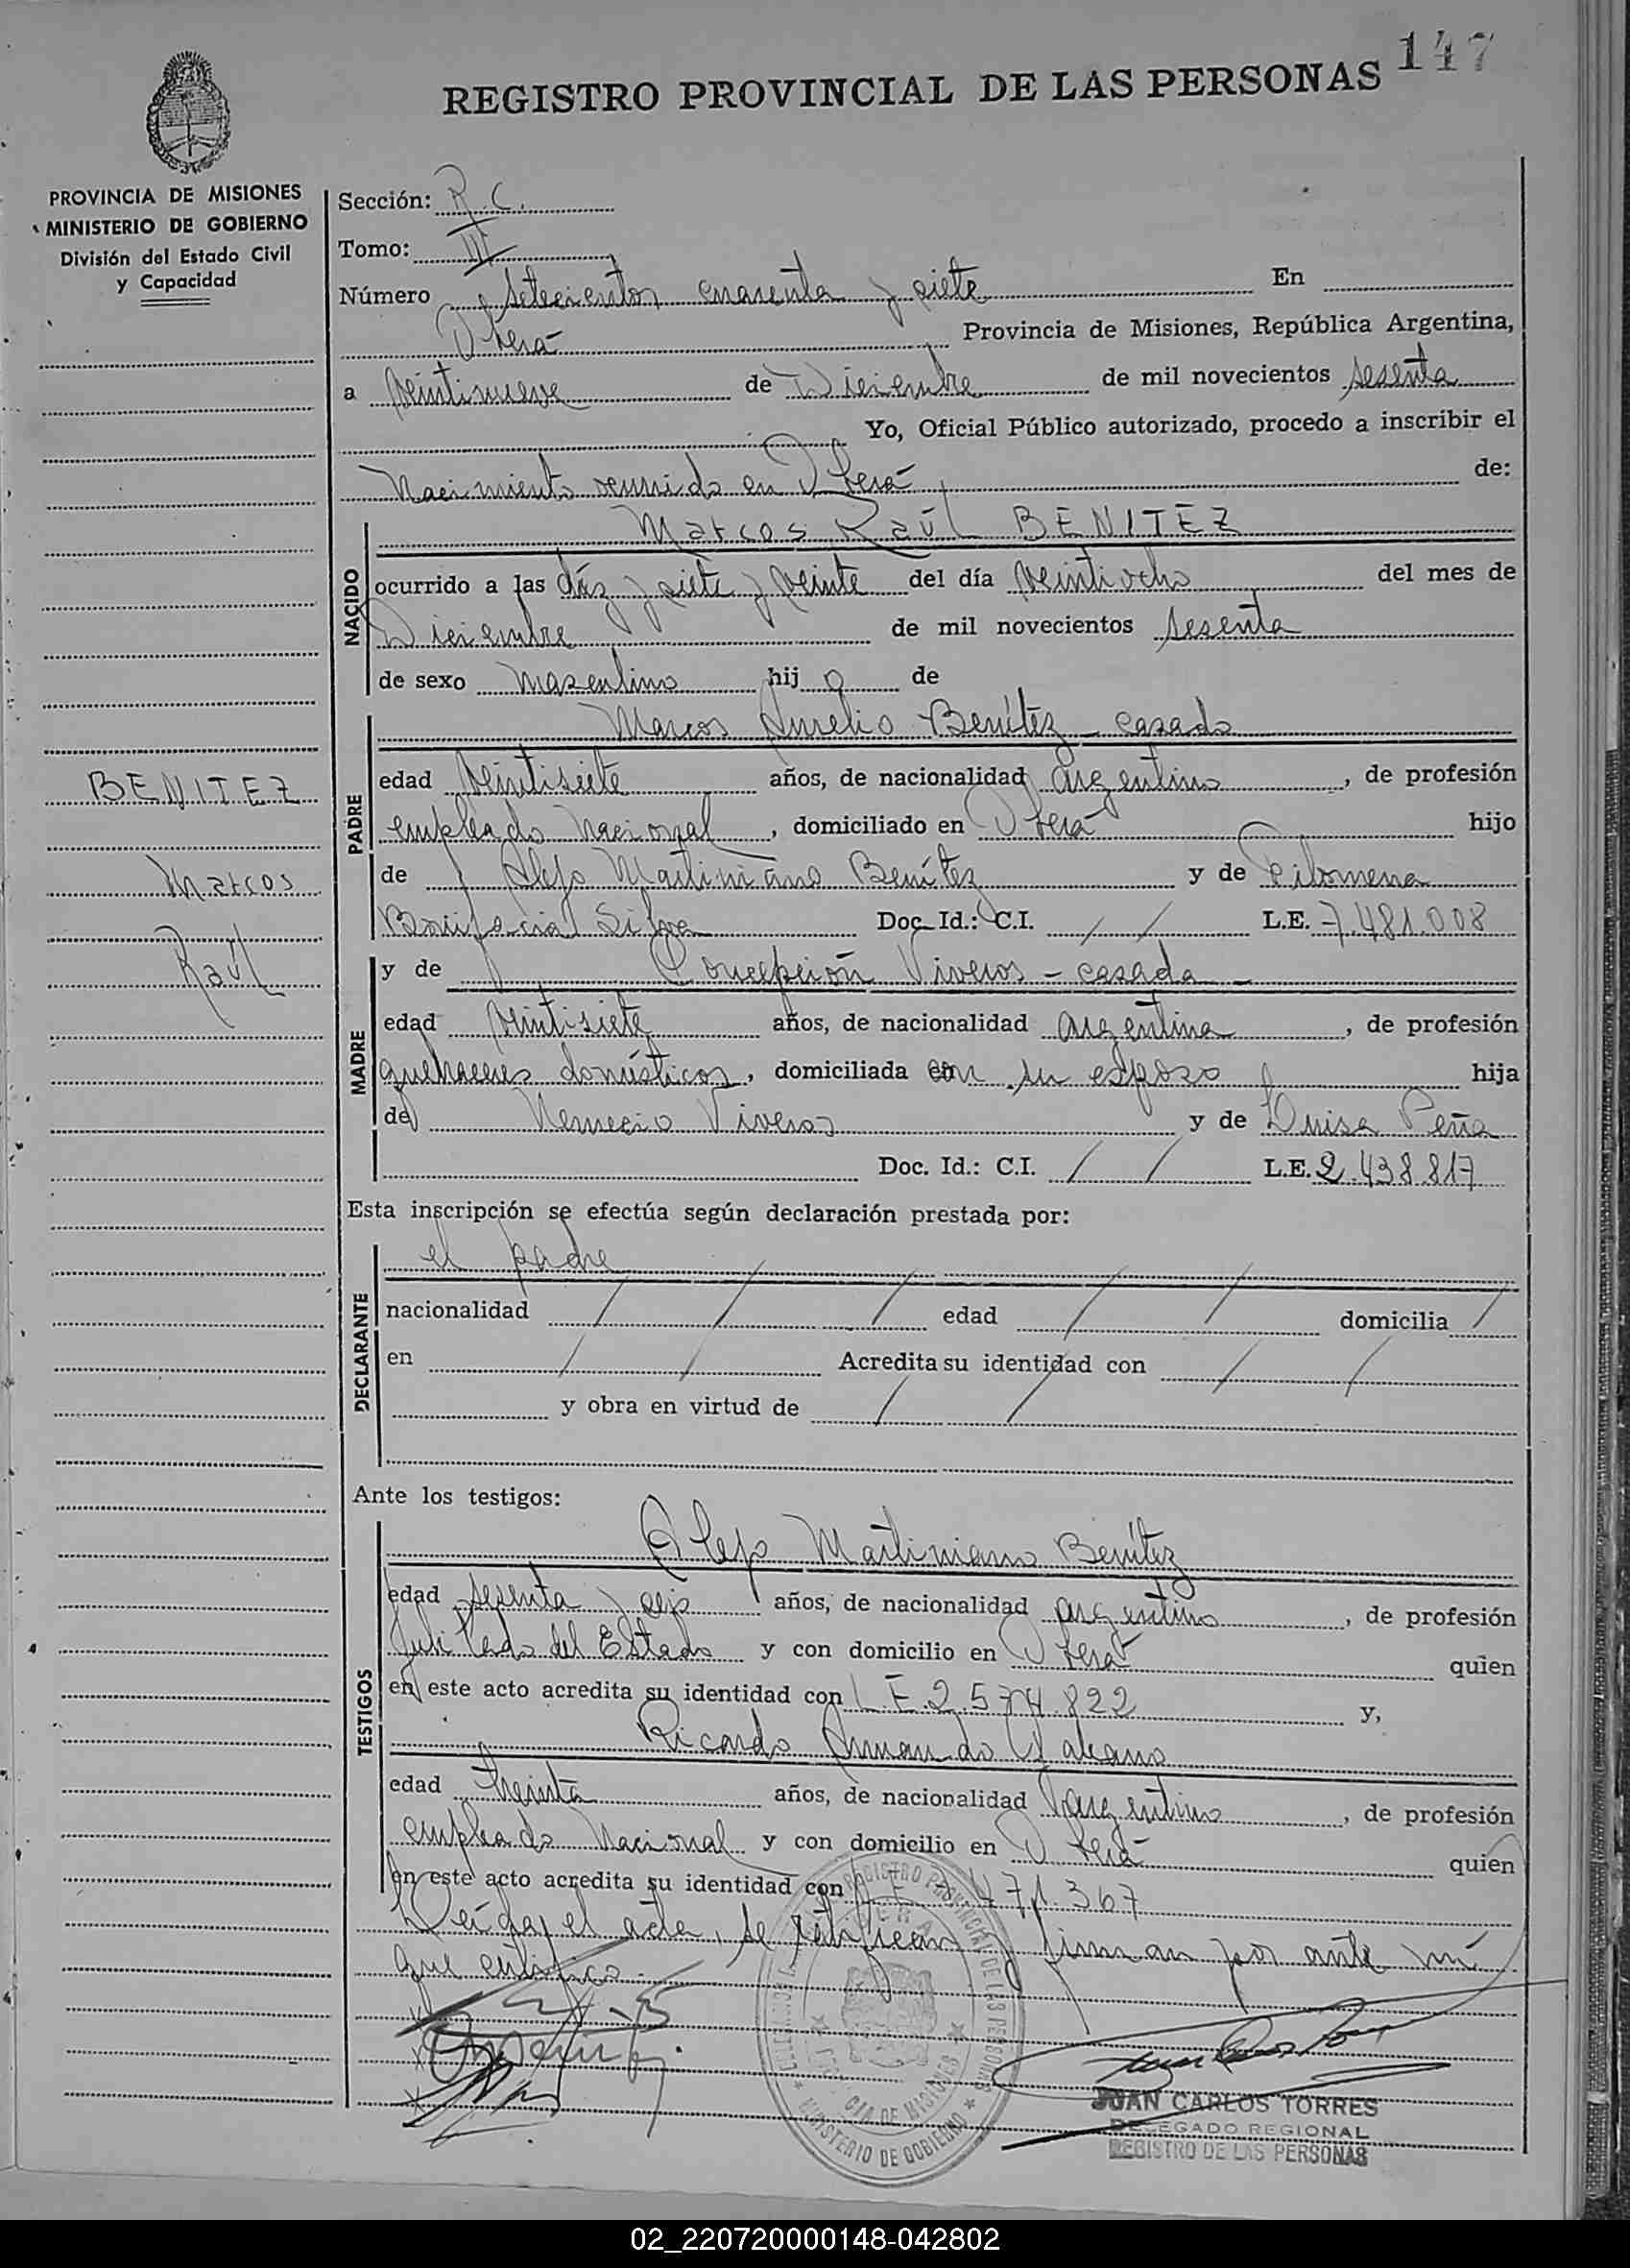 147
REGISTRO PROVINCIAL DE LAS PERSONAS
PROVINCIA DE MISIONES
MINISTERIO DE GOBIERNO
División del Estado Civil
y Capacidad
Sección: R.C.
Tomo: III
Número setecientos cuarenta y siete En
Oberá Provincia de Misiones, República Argentina,
a veintinueve de Diciembre de mil novecientos sesenta
Yo, Oficial Público autorizado, procedo a inscribir el
Nacimiento ocurrido en Oberá de:
Marcos Raúl BENITEZ
NACIDO
ocurrido a las diez y siete y veinte del día veintiocho del mes de
Diciembre de mil novecientos sesenta
de sexo masculino hij o de
Marcos Aurelio Benítez - casado
PADRE
edad veintisiete años, de nacionalidad argentino, de profesión
empleado Nacional, domiciliado en Oberá hijo
de Alejo Martiniano Benítez y de Filomena
Bonifacia Silva Doc. Id.: C.I. / / L.E. 7.481.008
BENITEZ
Marcos
Raúl
MADRE
y de Concepción Viveros - casada
edad veintisiete años, de nacionalidad argentina, de profesión
quehaceres domésticos, domiciliada con su esposo hija
de Nemecio Viveros y de Luisa Peña
Doc. Id.: C.I. / / L.E. 2.438.817
Esta inscripción se efectúa según declaración prestada por:
DECLARANTE
el padre
nacionalidad / / / edad / / domicilia /
en / / Acredita su identidad con / /
y obra en virtud de / /
Ante los testigos:
TESTIGOS
Alejo Martiniano Benítez
edad sesenta y seis años, de nacionalidad argentino, de profesión
Jubilado del Estado y con domicilio en Oberá quien
en este acto acredita su identidad con L.E. 2.574.822 y,
Ricardo Armando
edad treinta años, de nacionalidad argentino, de profesión
empleado Nacional y con domicilio en Oberá quien
en este acto acredita su identidad con 471.367
Leída el acta, se ratifican y firman por ante mí
que certifico.
REGISTRO PROVINCIAL DE LAS PERSONAS
MINISTERIO DE GOBIERNO
JUAN CARLOS TORRES
DELEGADO REGIONAL
REGISTRO DE LAS PERSONAS
02_220720000148-042802